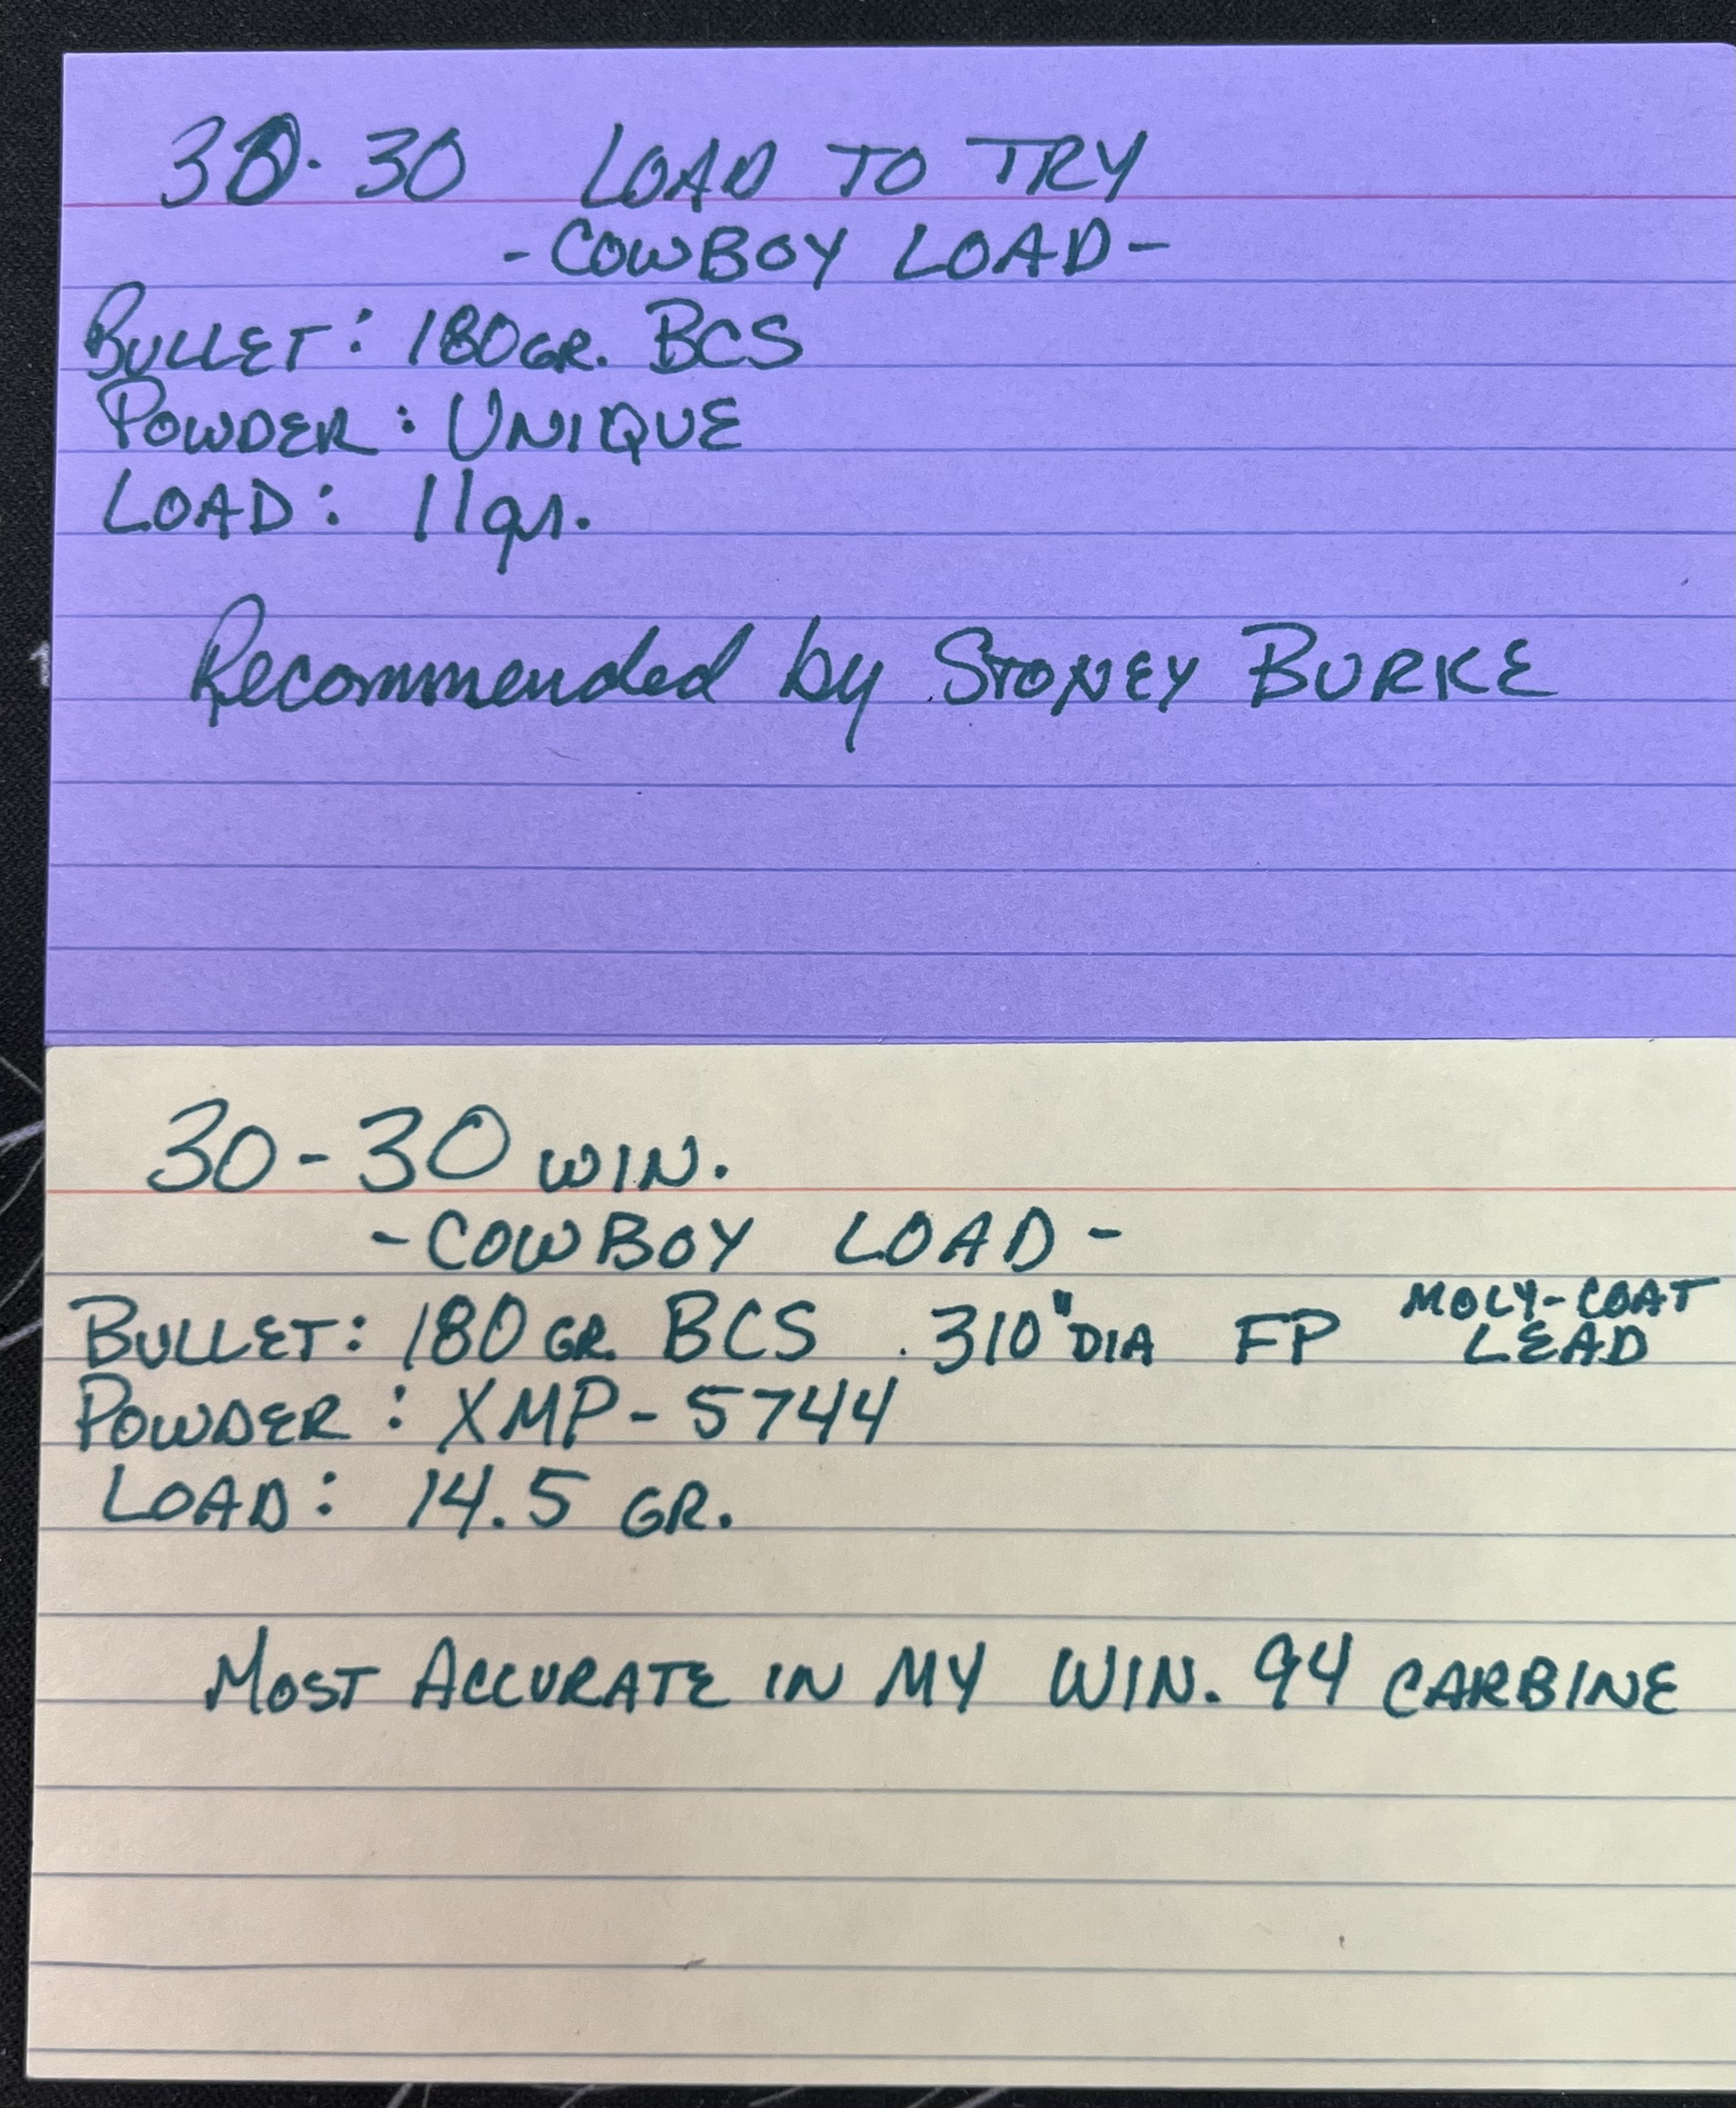 30-30 LOAD TO TRY
-COWBOY LOAD-
BULLET: 180GR. BCS
POWDER: UNIQUE
LOAD: 11gr.
Recommended by STONEY BURKE
30-30 WIN.
-COWBOY LOAD-
BULLET: 180 GR. BCS .310" DIA FP MOLY-COAT LEAD
POWDER: XMP-5744
LOAD: 14.5 GR.
MOST ACCURATE IN MY WIN. 94 CARBINE